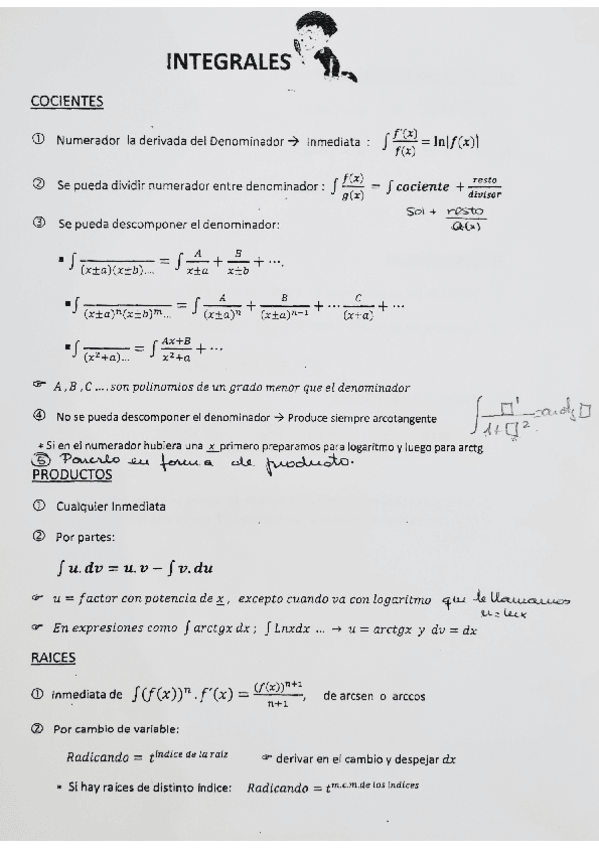 INTEGRALES
COCIENTES
① Numerador la derivada del Denominador → inmediata : ∫ f'(x)/f(x) = ln|f(x)|
② Se pueda dividir numerador entre denominador : ∫ f(x)/g(x) = ∫ cociente + resto/divisor
Sol + resto/Q(x)
③ Se pueda descomponer el denominador:
▪ ∫ ───/(x±a)(x±b)…. = ∫ A/x±a + B/x±b + ⋯.
▪ ∫ ───/(x±a)ⁿ(x±b)ᵐ… = ∫ A/(x±a)ⁿ + B/(x±a)ⁿ⁻¹ + ⋯ C/(x+a) + ⋯
▪ ∫ ───/(x²+a)… = ∫ Ax+B/x²+a + ⋯
☞ A , B , C …. son polinomios de un grado menor que el denominador
④ No se pueda descomponer el denominador → Produce siempre arcotangente
∫ □'/1+□² = arctg □
* Si en el numerador hubiera una x primero preparamos para logaritmo y luego para arctg
⑤ Ponerlo en forma de producto.
PRODUCTOS
① Cualquier Inmediata
② Por partes:
∫ u. dv = u. v − ∫ v. du
☞ u = factor con potencia de x , excepto cuando va con logaritmo que le llamamos
u=lnx
☞ En expresiones como ∫ arctgx dx ; ∫ Lnxdx … → u = arctgx y dv = dx
RAICES
① inmediata de ∫(f(x))ⁿ. f'(x) = (f(x))ⁿ⁺¹/n+1, de arcsen o arccos
② Por cambio de variable:
Radicando = t^indice de la raiz ☞ derivar en el cambio y despejar dx
▪ Si hay raíces de distinto índice: Radicando = t^m.c.m.de los índices